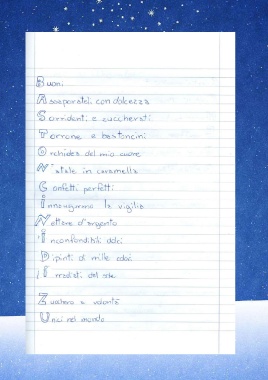 Buoni
Assaporateli con dolcezza
Sorridenti e zuccherati
Torrone e bastoncini
Orchidea del mio cuore
Natale in caramella
Confetti perfetti
Innevigarono la vigilia
Nettare d'argento
Inconfondibili dolci
Dipinti di mille odori
Irradiati del sole
Zucchero a volontà
Unici nel mondo